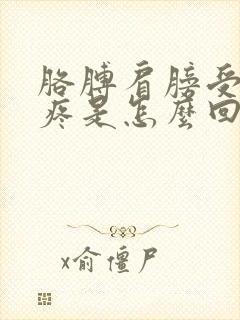 胳膊肩膀受
疼是怎麼回
x俞僵尸